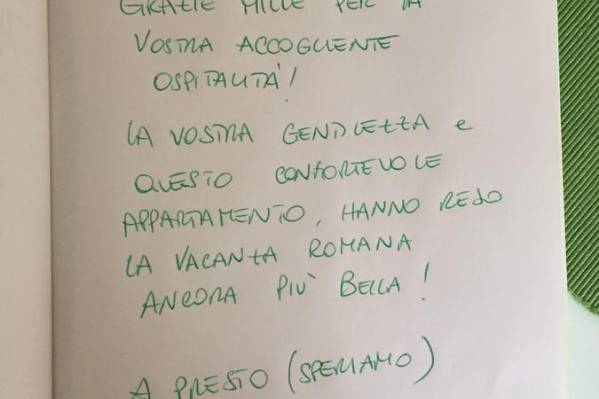 GRAZIE MILLE PER LA
VOSTRA ACCOGLIENTE
OSPITALITÀ!
LA VOSTRA GENTILEZZA e
QUESTO CONFORTEVOLE
APPARTAMENTO, HANNO RESO
LA VACANZA ROMANA
ANCORA PIÙ BELLA!
A PRESTO (SPERIAMO)